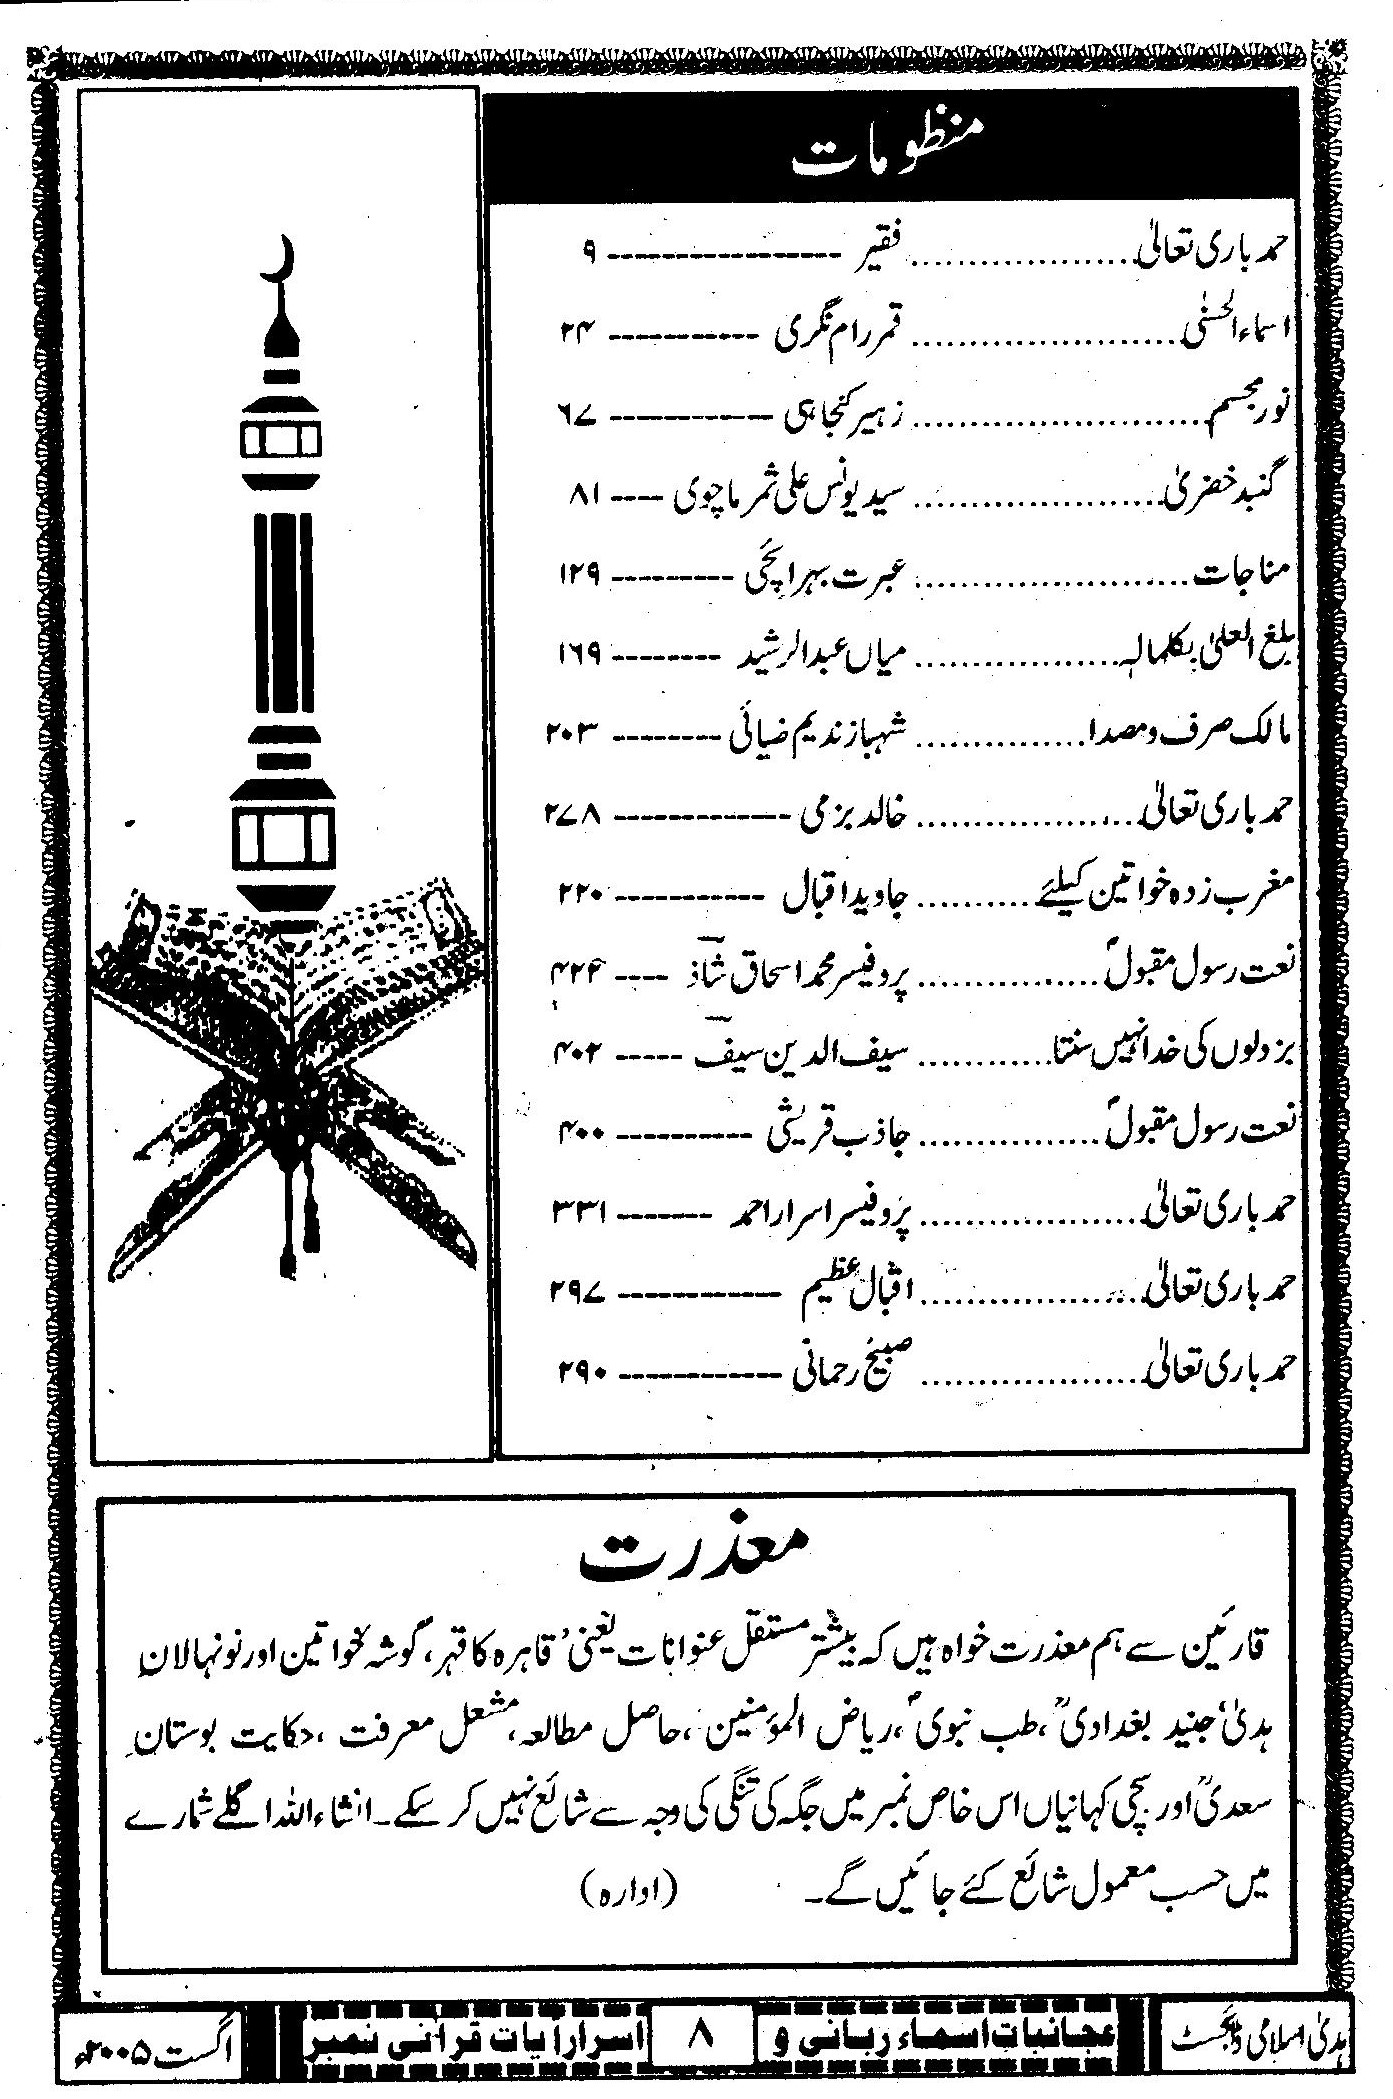 منظومات
حمد باری تعالیٰ.....................فقیر ----------------- ۹
اسماء الحسنٰی.........................قمر رام نگری ----------- ۲۴
نور مجسم...........................زہیر کنجاہی ------------ ۶۷
گنبد خضریٰ........................سید یونس علی ثمر ماچوی ---- ۸۱
مناجات..........................عبرت بہرائچی --------- ۱۲۹
بلغ العلیٰ بکمالہ...................میاں عبدالرشید -------- ۱۶۹
مالک صرف و صدا................شہباز ندیم ضیائی -------- ۲۰۳
حمد باری تعالیٰ.....................خالد بزمی ------------- ۲۷۸
مغرب زدہ خواتین کیلئے...........جاوید اقبال ----------- ۲۲۰
نعت رسول مقبولؐ.................پروفیسر محمد اسحاق شاذ ---- ۴۲۴
بزدلوں کی خدا نہیں سنتا............سیف الدین سیف ----- ۴۰۲
نعت رسول مقبولؐ.................جاذب قریشی ---------- ۴۰۰
حمد باری تعالیٰ.....................پروفیسر اسرار احمد ------- ۳۳۱
حمد باری تعالیٰ.....................اقبال عظیم ------------ ۲۹۷
حمد باری تعالیٰ.....................صبیح رحمانی ------------ ۲۹۰
معذرت
قارئین سے ہم معذرت خواہ ہیں کہ بیشتر مستقل عنوانات یعنی ' قاہرہ کا قہر، گوشہ خواتین اور نونہالانِ
ہدیٰ' جنید بغدادیؒ، طب نبویؐ، ریاض المؤمنین، حاصل مطالعہ، مشعل معرفت، حکایت بوستانِ
سعدیؒ اور سچی کہانیاں اس خاص نمبر میں جگہ کی تنگی کی وجہ سے شائع نہیں کر سکے۔ انشاء اللہ اگلے شمارے
میں حسب معمول شائع کئے جائیں گے۔ (ادارہ)
ہدیٰ اسلامی ڈائجسٹ عجائبات اسماء ربانی و ۸ اسرار آیات قرآنی نمبر اگست ۲۰۰۵ء